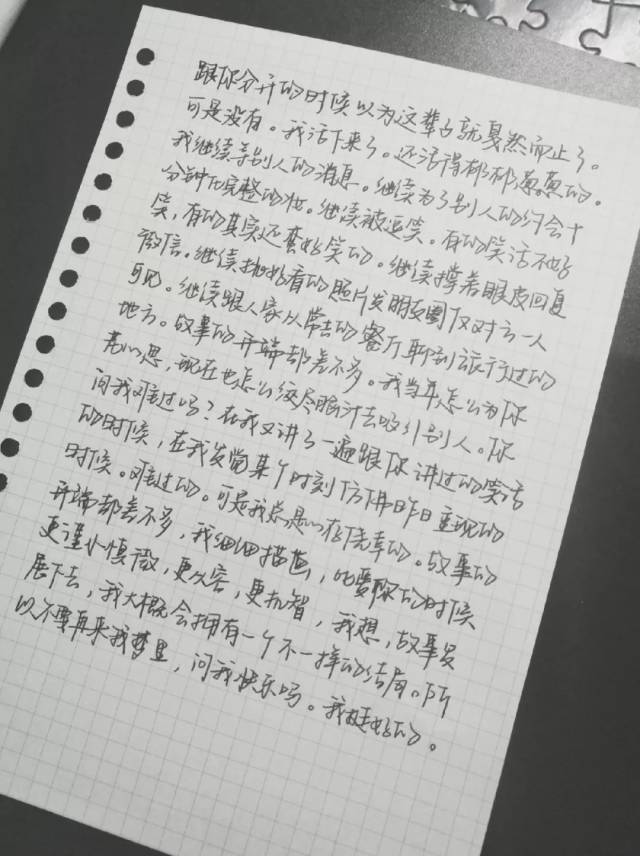 跟你分开的时候以为这辈子就戛然而止了。
可是没有。我活下来了。还活得郁郁葱葱的。
我继续等别人的消息。继续为了别人的约会十
分钟化完整的妆。继续被逗笑。有的笑话不好
笑，有的其实还蛮好笑的。继续撑着眼皮回复
微信。继续挑好看的照片发朋友圈仅对方一人
可见。继续跟人家从常去的餐厅聊到旅行过的
地方。故事的开端都差不多。我当年怎么为你
费心思，现在也怎么绞尽脑汁去吸引别人。你
问我难过吗？在我又讲了一遍跟你讲过的笑话
的时候，在我发觉某个时刻仿佛昨日重现的
时候。难过的。可是我总是心存侥幸的。故事的
开端都差不多，我细细描画，比爱你的时候
更谨小慎微，更从容，更机智，我想，故事发
展下去，我大概会拥有一个不一样的结局。所
以不要再来我梦里，问我快乐吗。我挺好的。